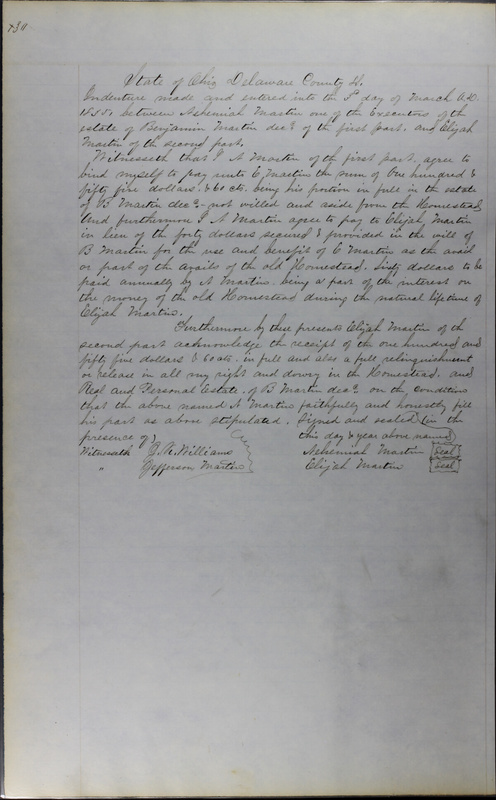 State of Ohio Delaware County ss.
Indenture made and entered into the 5th day of March A.D.
1855. between Nehemiah Martin one of the Executors of the
estate of Benjamin Martin decd. of the first part. and Elijah
Martin of the second part.
Witnesseth that I N Martin of the first part. agree to
bind myself to pay unto E, Martin the sum of One hundred &
fifty five dollars. & 60 cts. being his portion in full in the estate
of B Martin decd- not willed and aside from the Homestead
And furthermore I N Martin agree to pay to Elijah Martin
in lieu of the forty dollars secured & provided in the will of
B Martin for the use and benefit of E Martin as the avail
or part of the avails of the old Homestead. Sixty dollars to be
paid annually by N Martin. being a part of the interest on
the money of the old Homestead during the natural lifetime of
Elijah Martin.
Furthermore by these presents Elijah Martin of the
second part acknowledge the receipt of the one hundred and
fifty five dollars & 60 cts. in full and also a full relinquishment
or release in all my right and dowry in the Homestead. and
Real and Personal Estate. of B Martin decd. on the conditions
that the above named N Martin faithfully and honestly fill
his part as above stipulated. Signed and sealed (in the
presence of) this day & year above named)
Witnesseth J. W. Williams Nehemiah Martin seal
" Jefferson Martin Elijah Martin seal